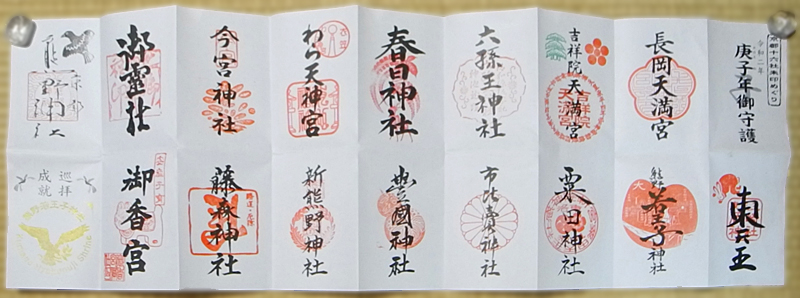 京都十六社朱印めぐり
令和二年
庚子年御守護
長岡天満宮
吉祥院天満宮
六孫王神社
春日神社
わら天神宮
今宮神社
御霊社
京都
東天王
熊野若王子神社
粟田神社
市比賣神社
豊國神社
新熊野神社
藤森神社
御香宮
巡拝
成就